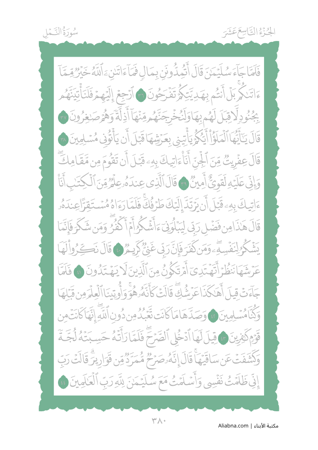 الجزء التاسع عشر
سورة النمل
فَلَمَّا جَآءَ سُلَيْمَٰنَ قَالَ أَتُمِدُّونَنِ بِمَالٍ فَمَآ ءَاتَىٰنِۦَ ٱللَّهُ خَيْرٌ مِّمَّآ
ءَاتَىٰكُم بَلْ أَنتُم بِهَدِيَّتِكُمْ تَفْرَحُونَ ٣٦ ٱرْجِعْ إِلَيْهِمْ فَلَنَأْتِيَنَّهُم
بِجُنُودٍ لَّا قِبَلَ لَهُم بِهَا وَلَنُخْرِجَنَّهُم مِّنْهَآ أَذِلَّةً وَهُمْ صَٰغِرُونَ ٣٧
قَالَ يَٰٓأَيُّهَا ٱلْمَلَؤُا۟ أَيُّكُمْ يَأْتِينِى بِعَرْشِهَا قَبْلَ أَن يَأْتُونِى مُسْلِمِينَ ٣٨
قَالَ عِفْرِيتٌ مِّنَ ٱلْجِنِّ أَنَا۠ ءَاتِيكَ بِهِۦ قَبْلَ أَن تَقُومَ مِن مَّقَامِكَ
وَإِنِّى عَلَيْهِ لَقَوِىٌّ أَمِينٌ ٣٩ قَالَ ٱلَّذِى عِندَهُۥ عِلْمٌ مِّنَ ٱلْكِتَٰبِ أَنَا۠
ءَاتِيكَ بِهِۦ قَبْلَ أَن يَرْتَدَّ إِلَيْكَ طَرْفُكَ فَلَمَّا رَءَاهُ مُسْتَقِرًّا عِندَهُۥ
قَالَ هَٰذَا مِن فَضْلِ رَبِّى لِيَبْلُوَنِىٓ ءَأَشْكُرُ أَمْ أَكْفُرُ وَمَن شَكَرَ فَإِنَّمَا
يَشْكُرُ لِنَفْسِهِۦ وَمَن كَفَرَ فَإِنَّ رَبِّى غَنِىٌّ كَرِيمٌ ٤٠ قَالَ نَكِّرُوا۟ لَهَا
عَرْشَهَا نَنظُرْ أَتَهْتَدِىٓ أَمْ تَكُونُ مِنَ ٱلَّذِينَ لَا يَهْتَدُونَ ٤١ فَلَمَّا
جَآءَتْ قِيلَ أَهَٰكَذَا عَرْشُكِ قَالَتْ كَأَنَّهُۥ هُوَ وَأُوتِينَا ٱلْعِلْمَ مِن قَبْلِهَا
وَكُنَّا مُسْلِمِينَ ٤٢ وَصَدَّهَا مَا كَانَت تَّعْبُدُ مِن دُونِ ٱللَّهِ إِنَّهَا كَانَتْ مِن
قَوْمٍ كَٰفِرِينَ ٤٣ قِيلَ لَهَا ٱدْخُلِى ٱلصَّرْحَ فَلَمَّا رَأَتْهُ حَسِبَتْهُ لُجَّةً
وَكَشَفَتْ عَن سَاقَيْهَا قَالَ إِنَّهُۥ صَرْحٌ مُّمَرَّدٌ مِّن قَوَارِيرَ قَالَتْ رَبِّ
إِنِّى ظَلَمْتُ نَفْسِى وَأَسْلَمْتُ مَعَ سُلَيْمَٰنَ لِلَّهِ رَبِّ ٱلْعَٰلَمِينَ ٤٤
٣٨٠
مكتبة الأبناء | Aliabna.com